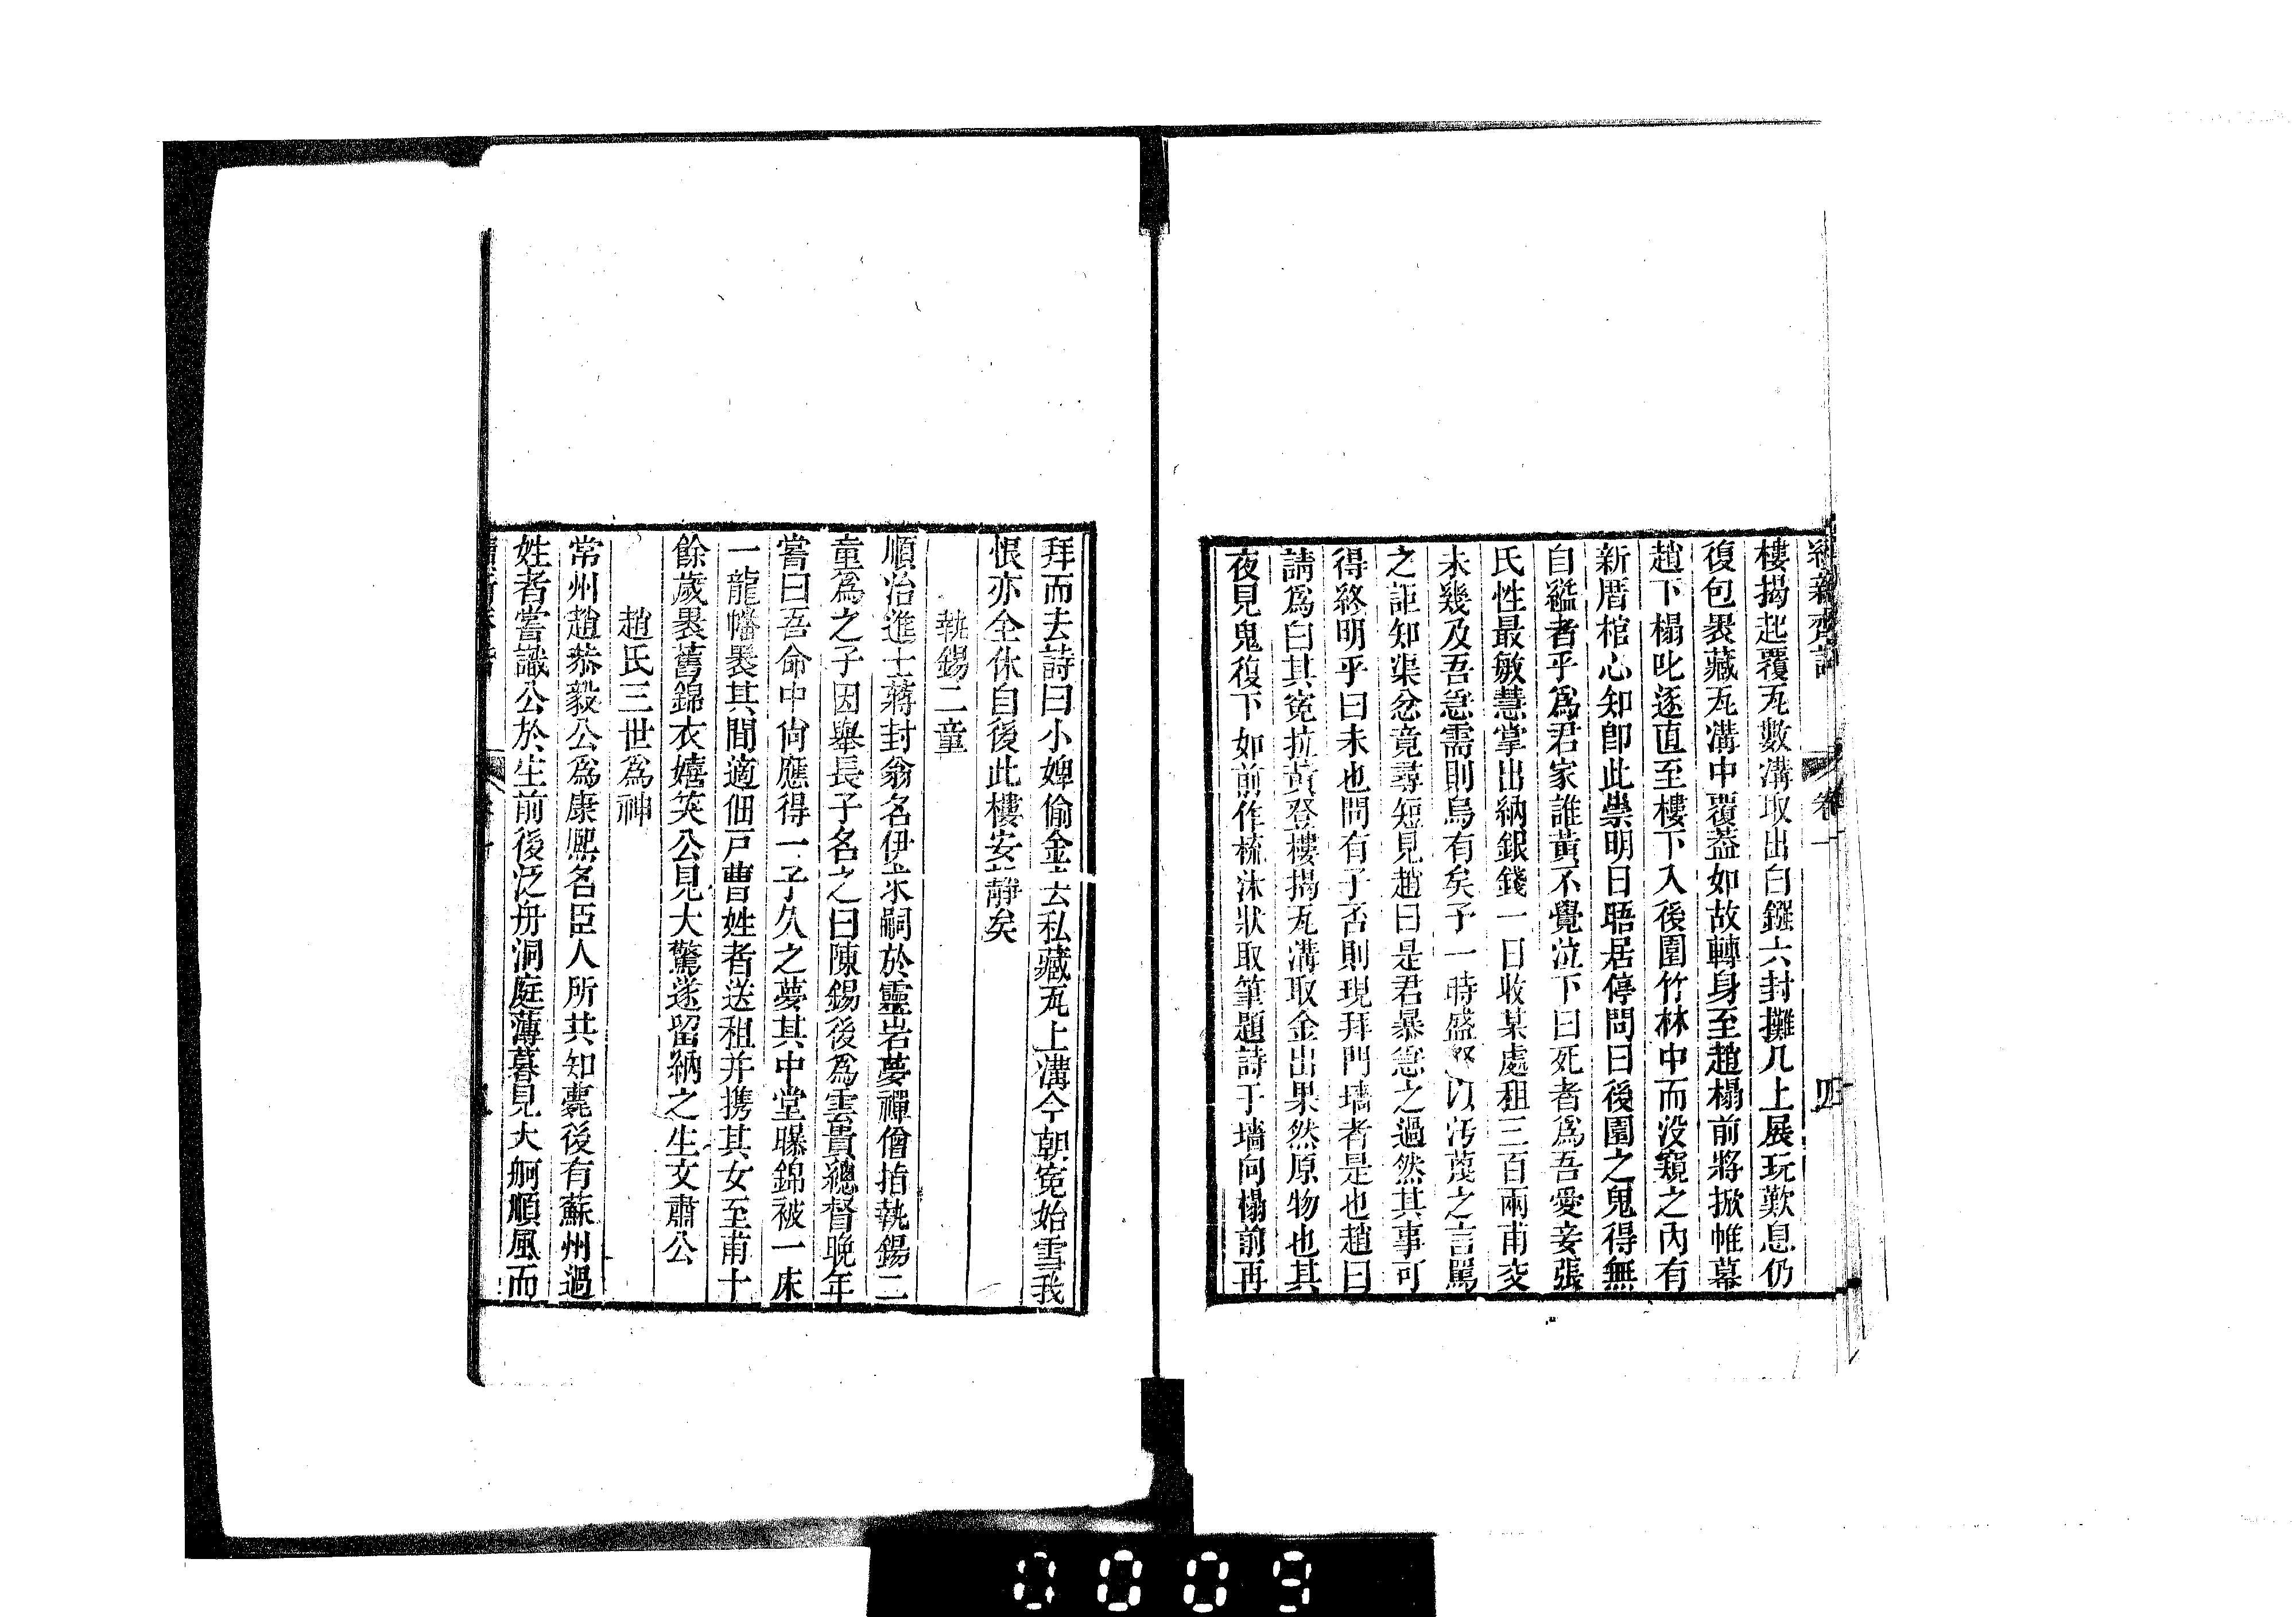 續新齊諧 卷一 四
樓揭起覆瓦數溝取出白鏹六封攤几上展玩歎息仍
復包褁藏瓦溝中覆葢如故轉身至趙榻前將掀帷幕
趙下榻叱逐直至樓下入後園竹林中而没窺之内有
新厝棺心知卽此祟明日語居停問曰後園之鬼得無
自縊者乎爲君家誰黃不覺泣下曰死者爲吾愛妾張
氏性最敏慧掌出納銀錢一日收某處租三百兩甫交
未幾及吾急需則烏有矣予一時盛怒以汚蔑之言罵
之詎知渠忿竟尋短見趙曰是君暴急之過然其事可
得終明乎曰未也問有子否則現拜門墻者是也趙曰
請爲白其寃抗黃登樓揭瓦溝取金出果然原物也其
夜見鬼復下如前作梳沐狀取筆題詩于墻向榻前再
拜而去詩曰小婢偷金去私藏瓦上溝今朝寃始雪我
恨亦全休自後此樓安静矣
執錫二童
順治進士蔣封翁名伊求嗣於靈岩夢禪僧指執錫二
童爲之子因舉長子名之曰陳錫後爲雲貴總督晚年
嘗曰吾命中尙應得一子久之夢其中堂曝錦被一床
一龍幡褁其間適佃戸曹姓者送租并携其女至甫十
餘歲褁舊錦衣嬉笑公見大驚遂留納之生文肅公
趙氏三世爲神
常州趙恭毅公爲康熙名臣人所共知薨後有蘇州過
姓者嘗識公於生前後泛舟洞庭薄暮見大舸順風而